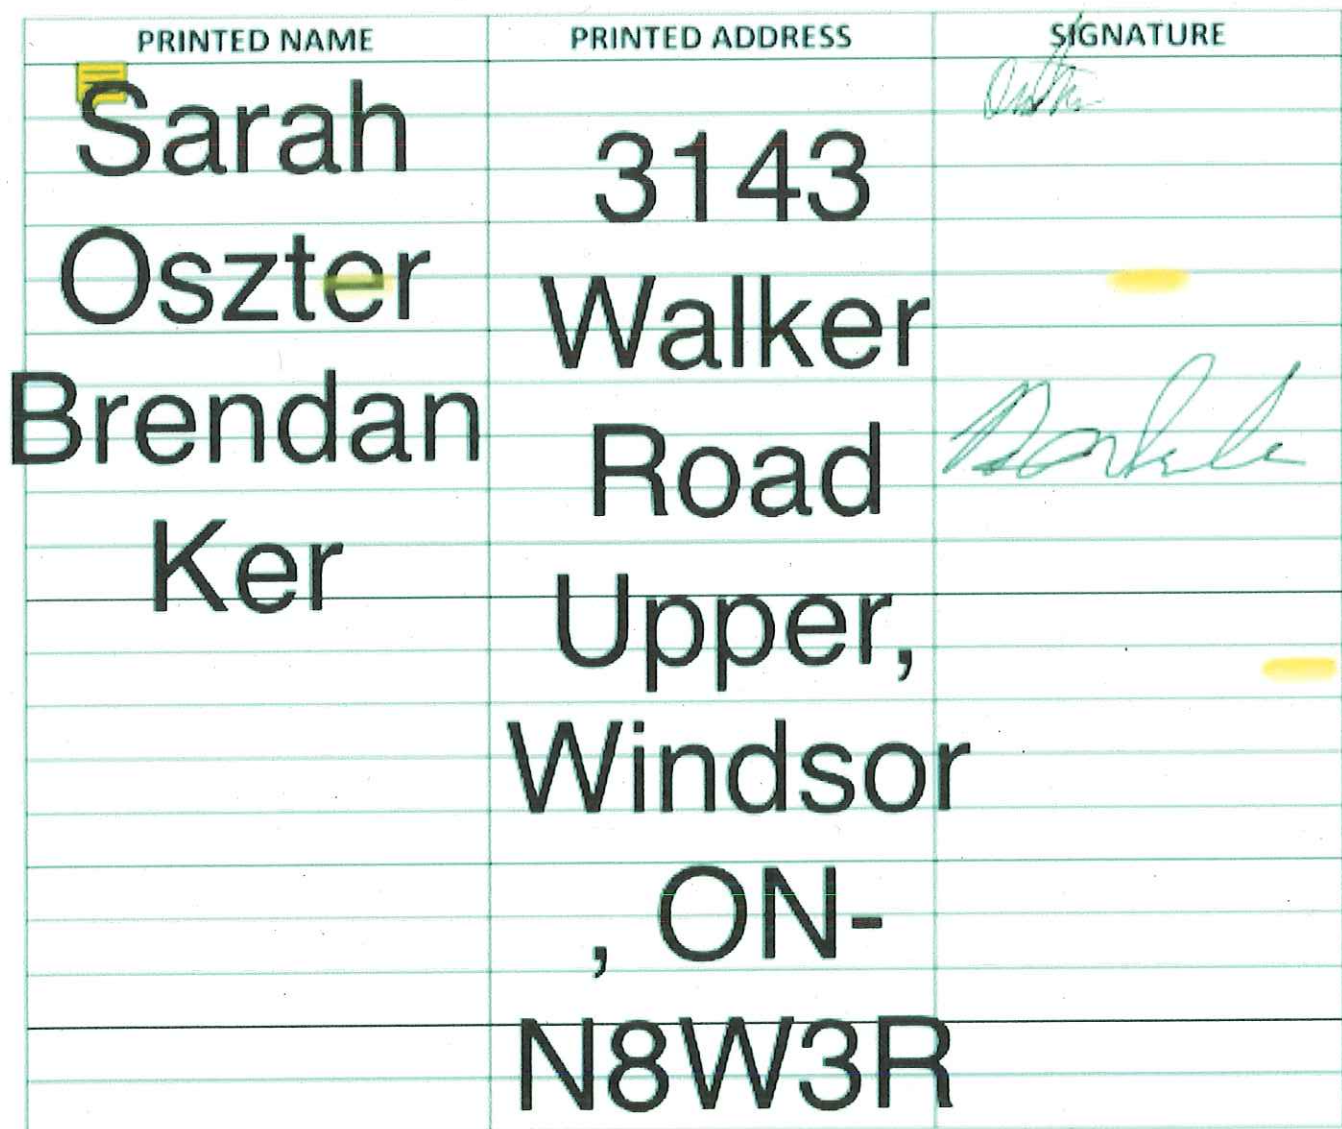 PRINTED NAME PRINTED ADDRESS SIGNATURE
Sarah
Oszter
Brendan
Ker
3143
Walker
Road
Upper,
Windsor
, ON-
N8W3R